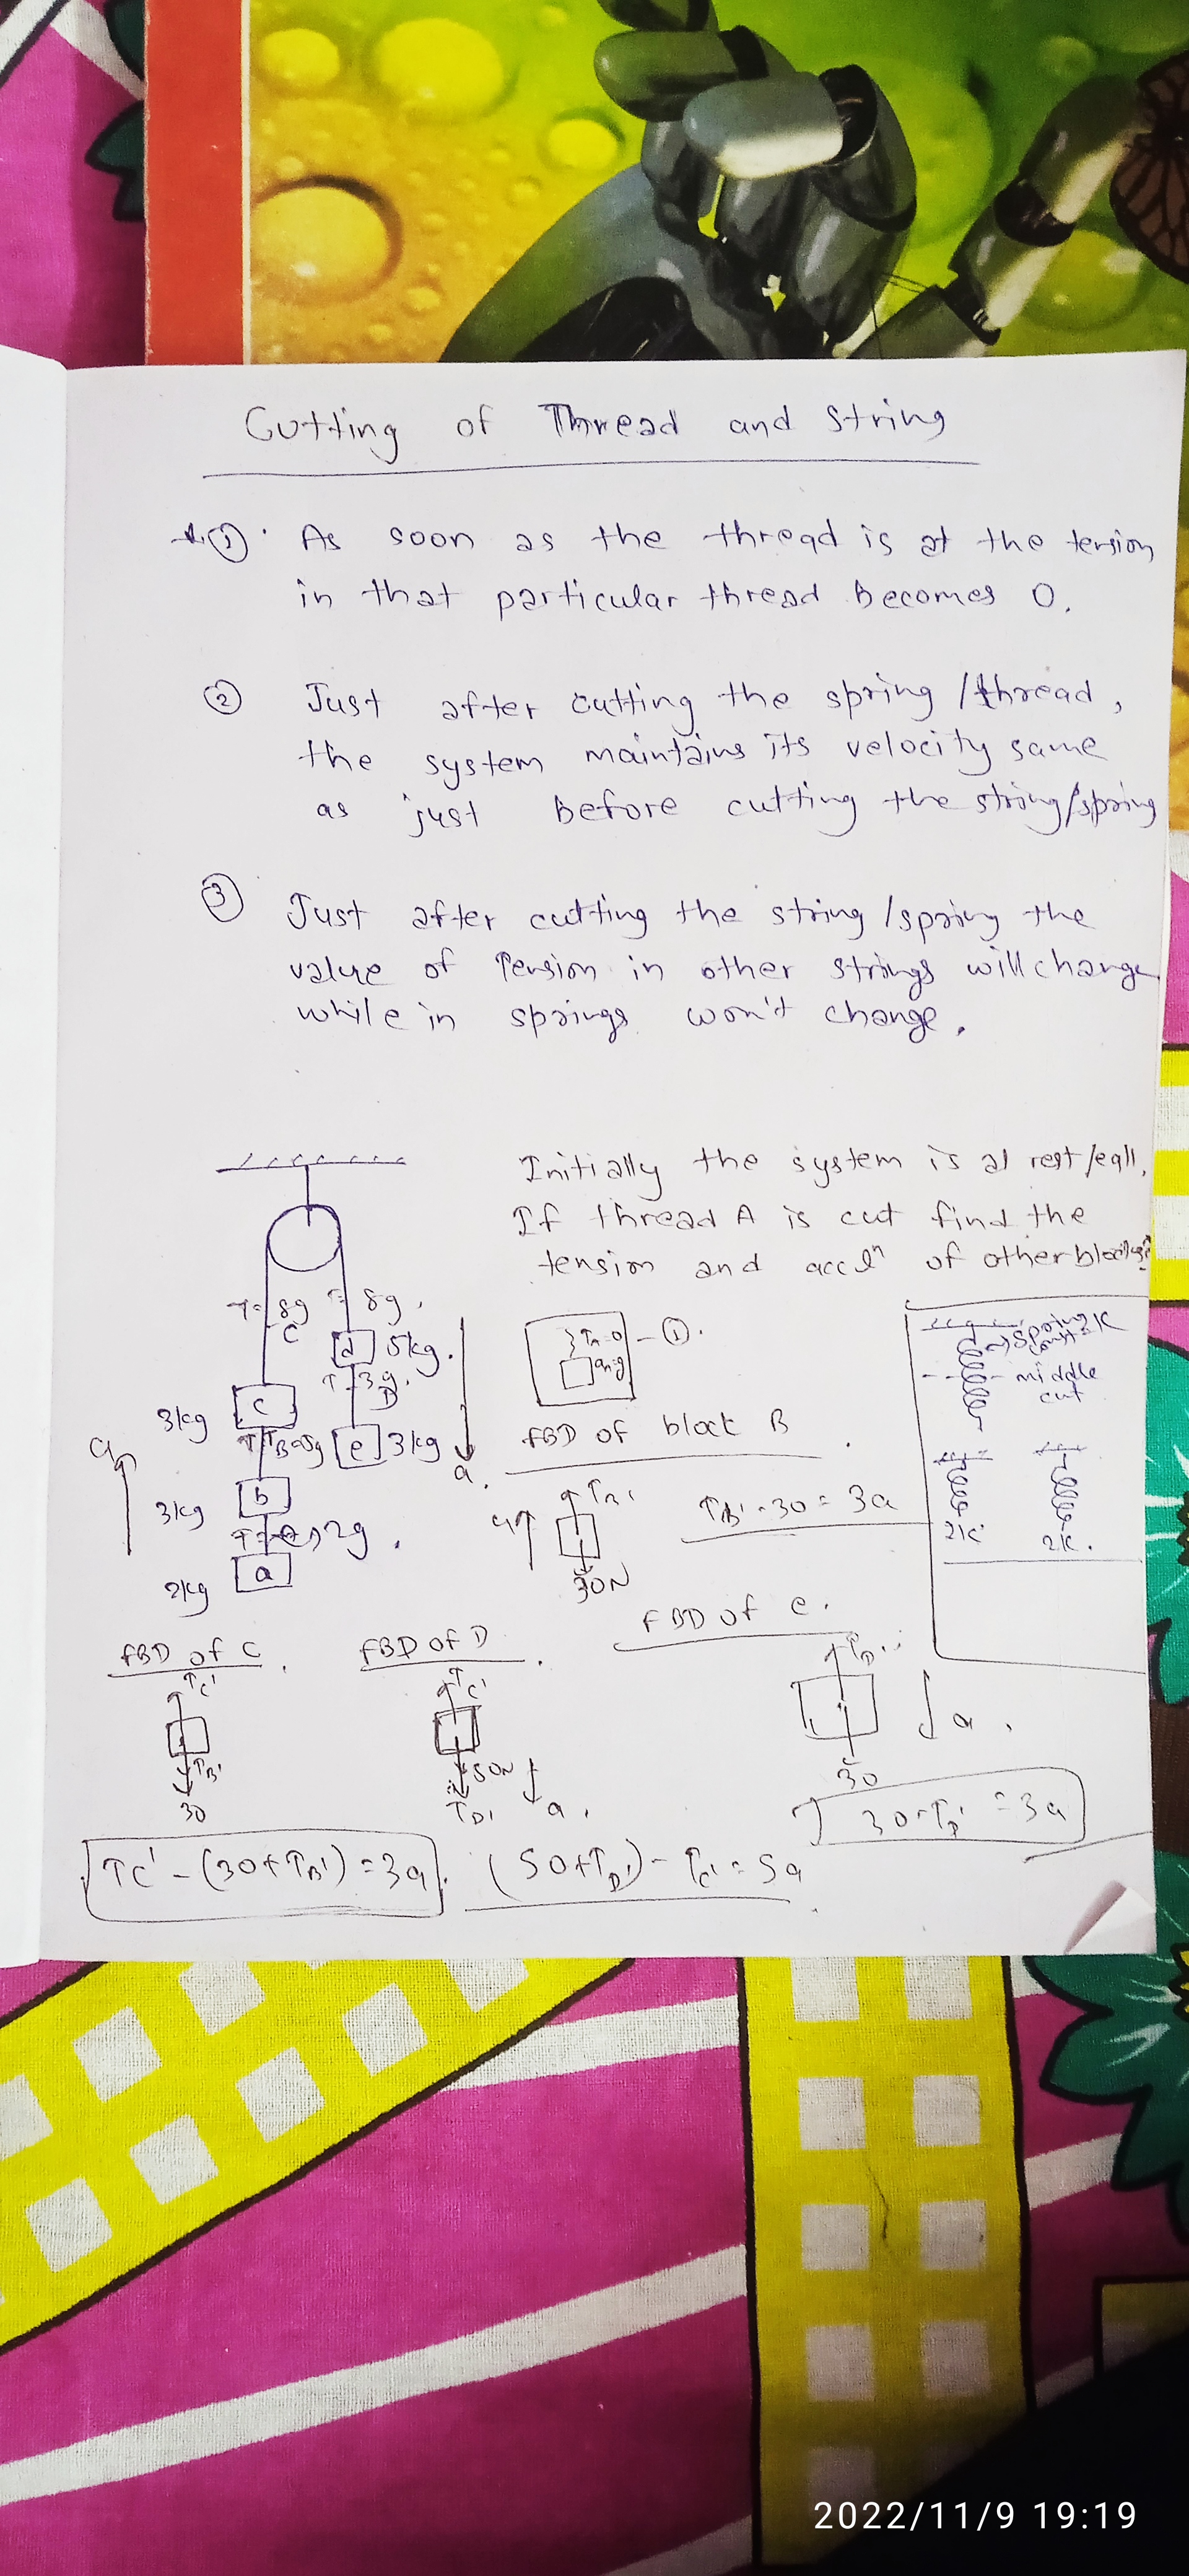 Cutting of Thread and String
① As soon as the thread is at the tension
in that particular thread becomes 0.
② Just after cutting the spring /thread,
the system maintains its velocity same
as just before cutting the string/spring
③ Just after cutting the string /spring the
value of Tension in other strings will change
while in springs won't change.
Initially the system is at rest/eqll.
If thread A is cut find the
tension and acclⁿ of other blocks?
T=8g T=8g.
C
d 5kg.
T=3g.
D
3kg c
e 3kg
a
a.
3kg b
2g.
2kg a
- ①.
FBD of block B
TB'
a
30N
TB' - 30 = 3a
spring
const=K
middle
cut
2K
2K.
FBD of C.
TC'
TB'
30
FBD of D.
TC'
50N
TD'
a.
FBD of e.
TD'
a.
30
30-TD' = 3a
TC' - (30+TB') = 3a. (50+TD') - TC' = 5a
2022/11/9 19:19